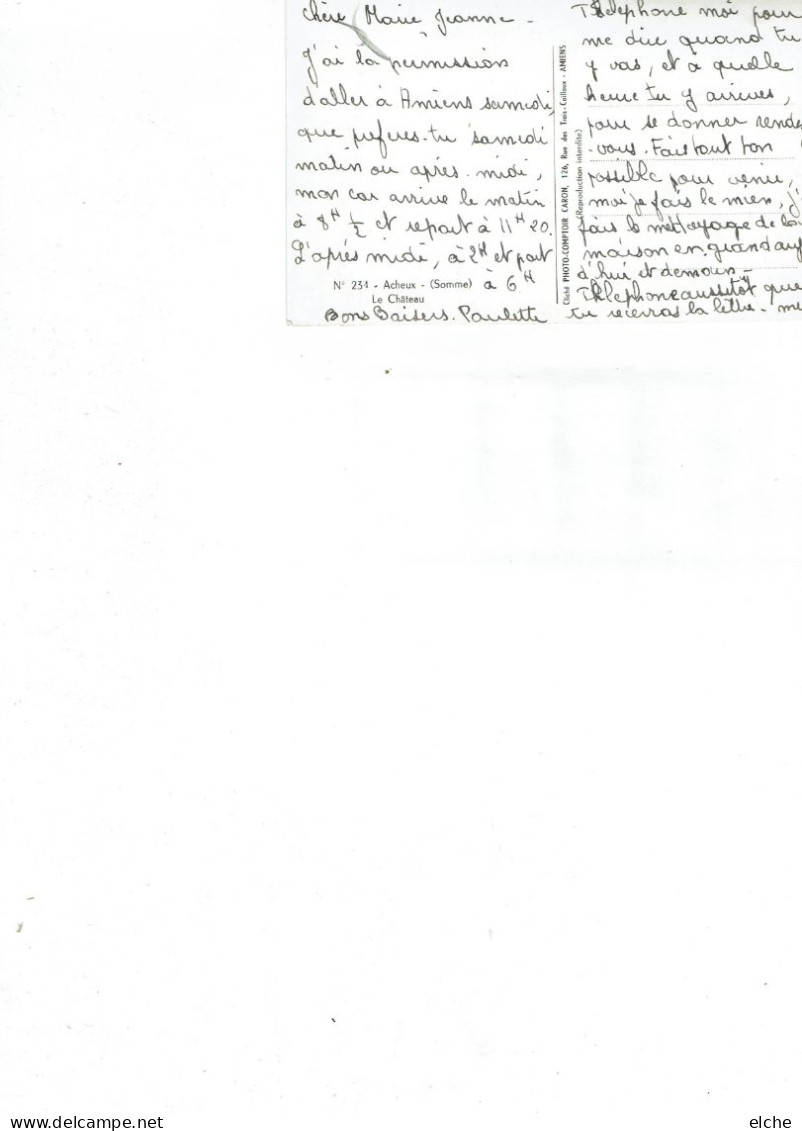 Chère Marie Jeanne -
J'ai la permission
d'aller à Amiens samedi,
que préfères-tu samedi
matin ou après-midi,
mon car arrive le matin
à 8H ½ et repart à 11H20.
L'après midi, à 2H et part
à 6H
N° 234 - Acheux - (Somme)
Le Château
Bons Baisers. Paulette
Cliché PHOTO-COMPTOIR CARON, 126, Rue des Trois-Cailloux - AMIENS
(Reproduction interdite)
Téléphone moi pour
me dire quand tu
y vas, et à quelle
heure tu y arrives,
pour se donner rendez
-vous. Fais tout ton
possible pour venir,
moi je fais le mien, j'
fais le nettoyage de la
maison en grand auj
d'hui et demain -
Téléphone aussitôt que
tu recevras la lettre -
delcampe.net
elche